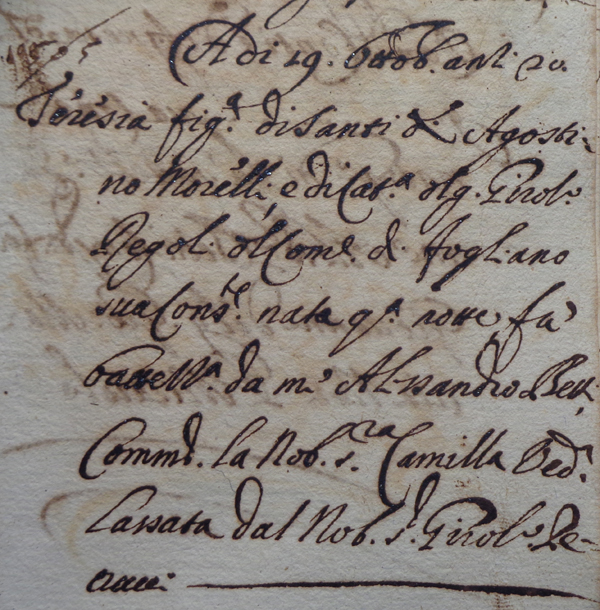 A di 19. Ottob. ant. 20.
Teresia fig.a di Santi di Agosti-
no Morelli, e di Cat.a del q. Girol.o
Regol. del Com.e di Fogliano
sua Cons.te nata q.ta notte, fu
battezz.a da m.o Alessandro Bett.
Comm.e la Nob. S.ra Camilla Ved.a
Lassata dal Nob. S.r Girol.o Pe-